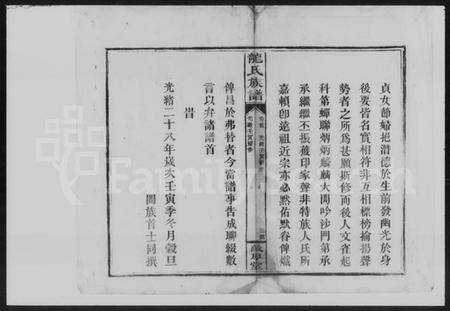 貞女節婦挹潛德於生前發幽光於身
後要皆者實相符非互相標榜掄揚聲
勢者之所為甚願斯修而後人文雀起
科第蟬聯炳炳麟麟大開吟沙門第承
承繼繼丕振獲印家聲非特族人氏所
嘉賴即遠祖近宗亦必默佑默眷俾熾
龍氏族譜
俾昌於弗替者今當譜事告成聊綴數
言以弁諸譜首
旹
光緒二十八年歲次壬寅季冬月穀旦
闔族首士同撰
FamilySearch